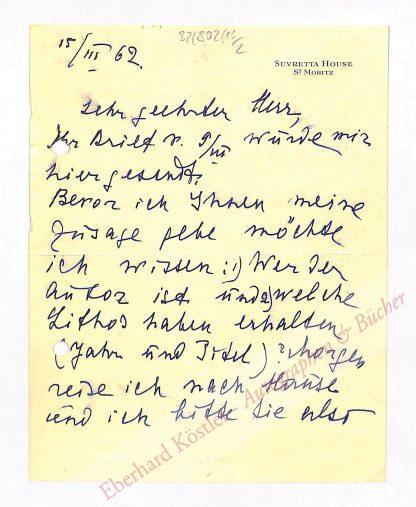 15/III 62.
SUVRETTA HOUSE
ST MORITZ
Sehr geehrter Herr,
Ihr Brief v. 9/III wurde mir
hiergesendt.
Bevor ich Ihnen meine
Zusage gebe möchte
ich wissen: 1) Wer der
Autor ist und 2) welche
Lithos haben erhalten
(Jahr und Titel)? Morgen
reise ich nach Hause
und ich bitte Sie also
Eberhard Köstler Autographen & Bücher